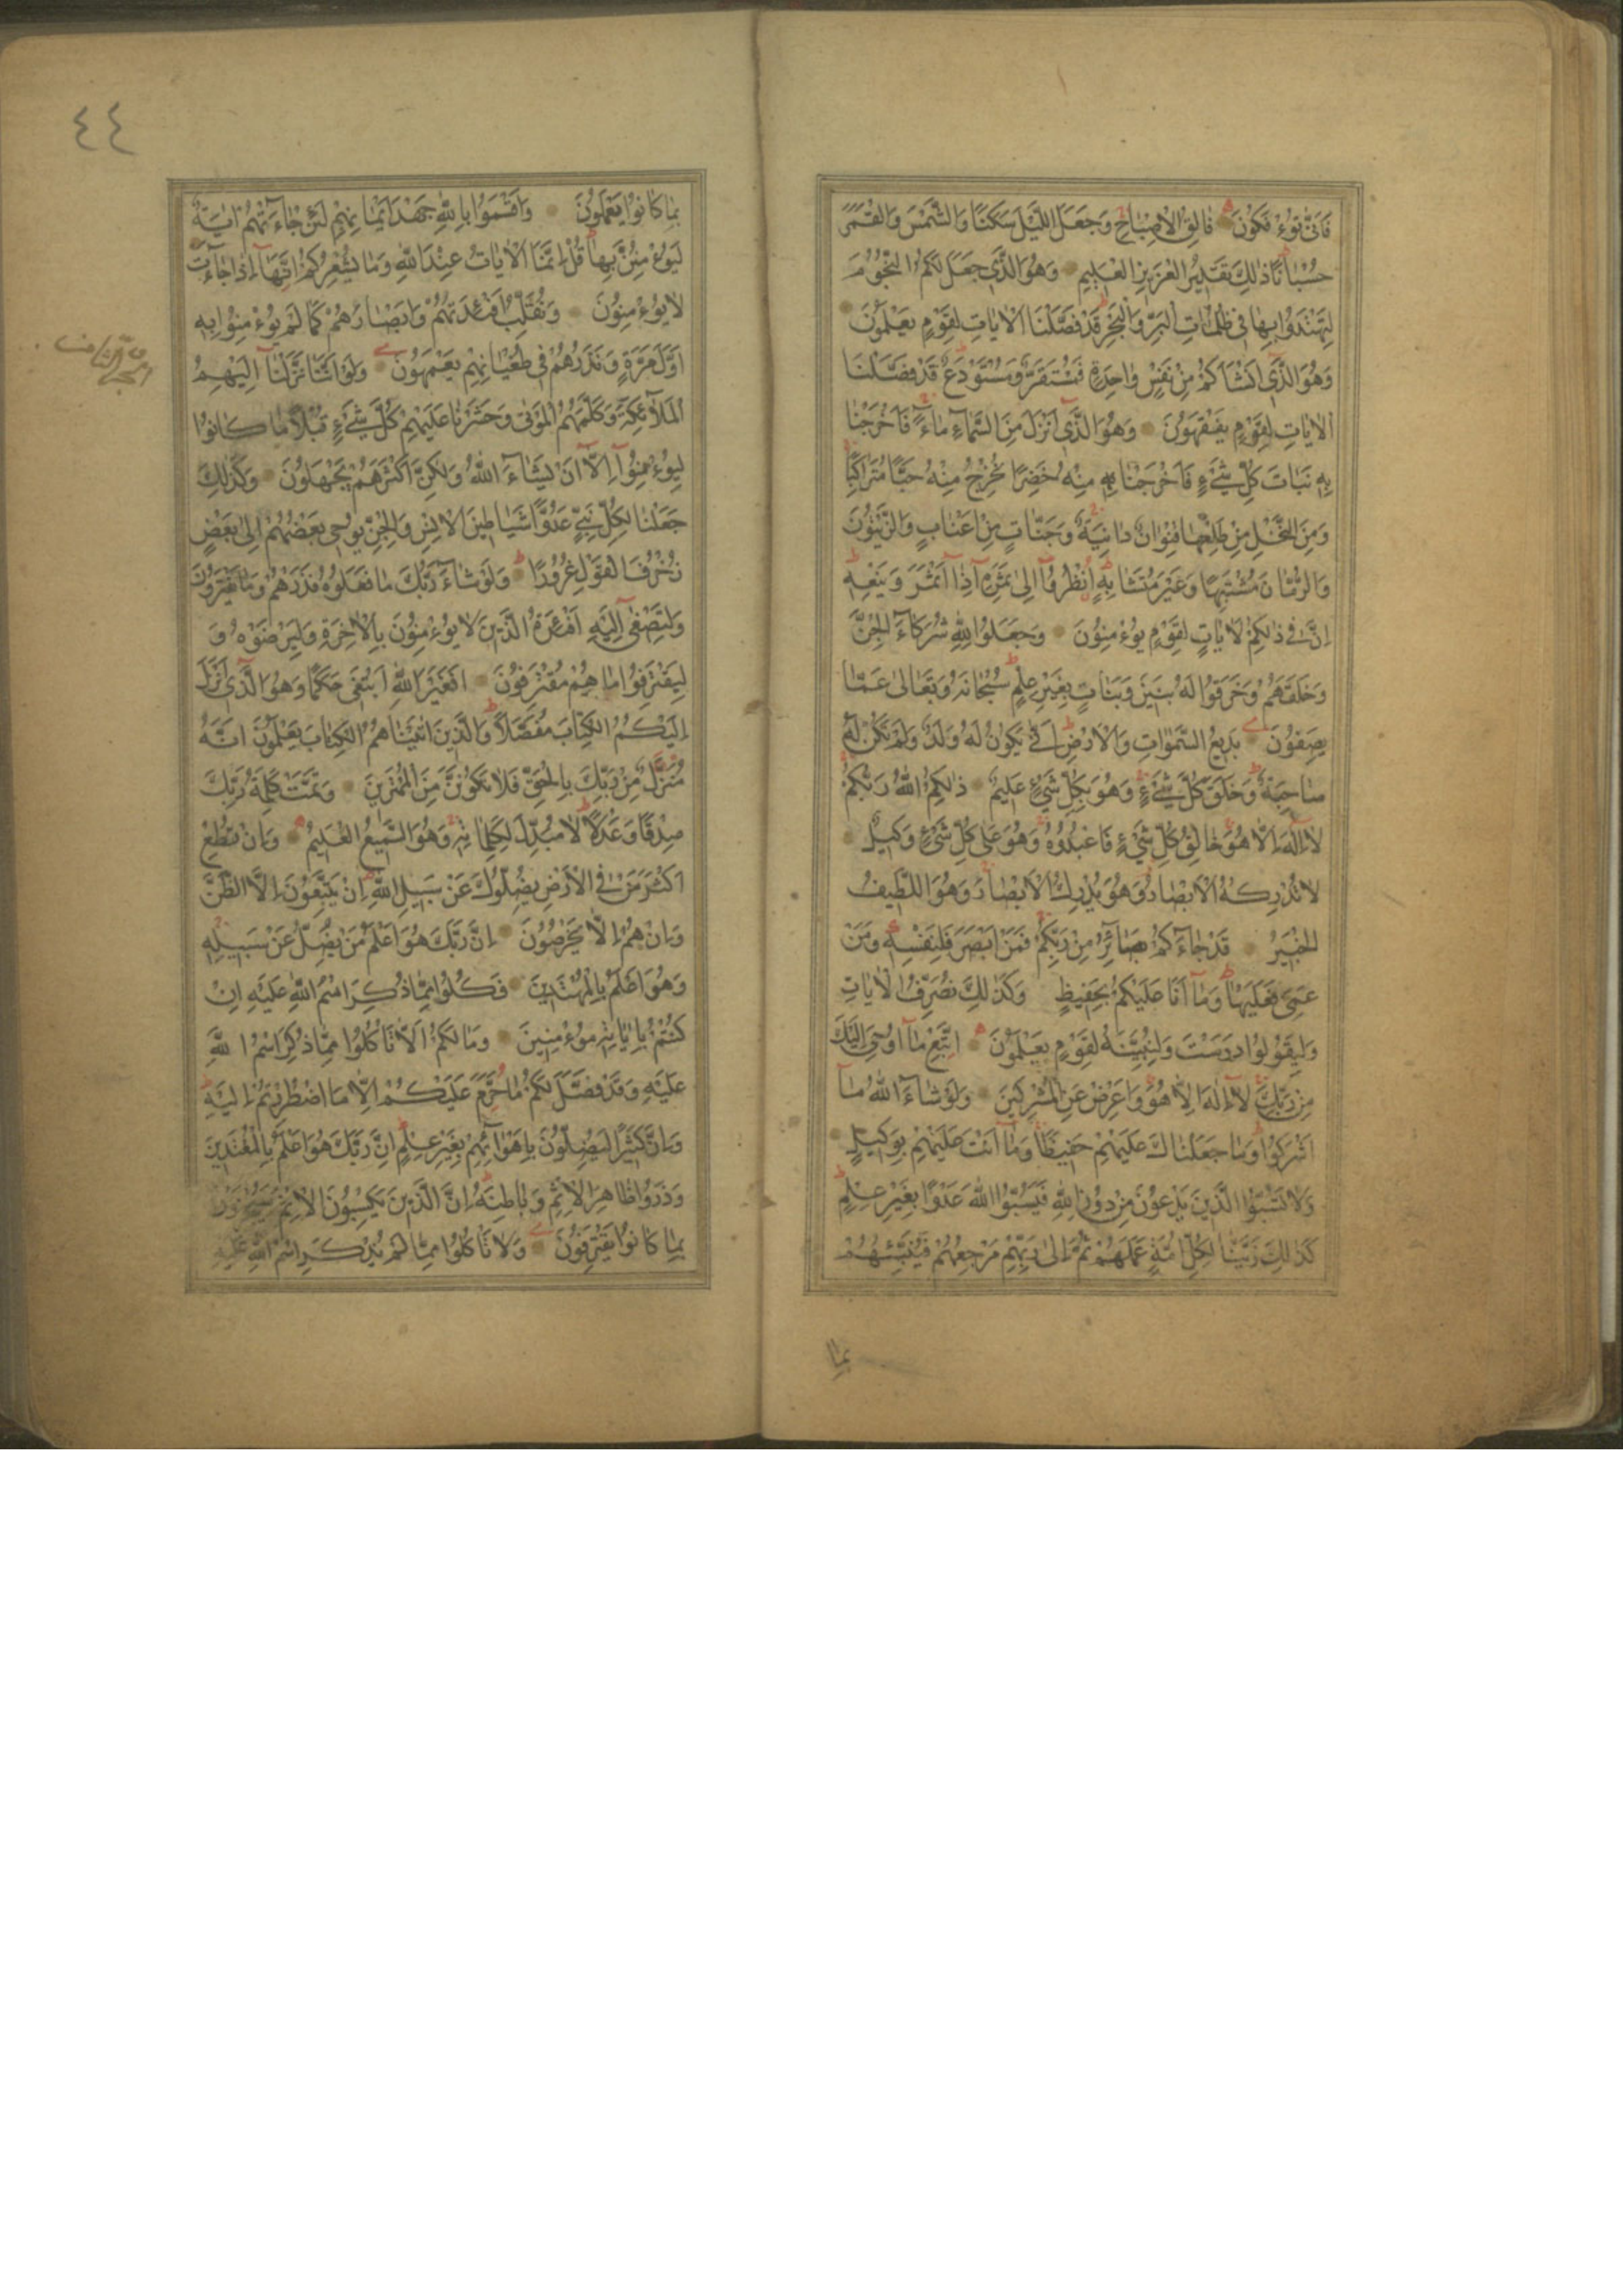 فَاَنّٰى تُؤْفَكُونَ فَالِقُ الْاِصْبَاحِ وَجَعَلَ اللَّيْلَ سَكَنًا وَالشَّمْسَ وَالْقَمَرَ
حُسْبَانًا ذٰلِكَ تَقْدِيرُ الْعَزِيزِ الْعَلِيمِ وَهُوَ الَّذِي جَعَلَ لَكُمُ النُّجُومَ
لِتَهْتَدُوا بِهَا فِي ظُلُمَاتِ الْبَرِّ وَالْبَحْرِ قَدْ فَصَّلْنَا الْاٰيَاتِ لِقَوْمٍ يَعْلَمُونَ
وَهُوَ الَّذِي اَنْشَاَكُمْ مِنْ نَفْسٍ وَاحِدَةٍ فَمُسْتَقَرٌّ وَمُسْتَوْدَعٌ قَدْ فَصَّلْنَا
الْاٰيَاتِ لِقَوْمٍ يَفْقَهُونَ وَهُوَ الَّذِي اَنْزَلَ مِنَ السَّمَاءِ مَاءً فَاَخْرَجْنَا
بِهِ نَبَاتَ كُلِّ شَيْءٍ فَاَخْرَجْنَا مِنْهُ خَضِرًا نُخْرِجُ مِنْهُ حَبًّا مُتَرَاكِبًا
وَمِنَ النَّخْلِ مِنْ طَلْعِهَا قِنْوَانٌ دَانِيَةٌ وَجَنَّاتٍ مِنْ اَعْنَابٍ وَالزَّيْتُونَ
وَالرُّمَّانَ مُشْتَبِهًا وَغَيْرَ مُتَشَابِهٍ اُنْظُرُوا اِلٰى ثَمَرِهِ اِذَا اَثْمَرَ وَيَنْعِهِ
اِنَّ فِي ذٰلِكُمْ لَاٰيَاتٍ لِقَوْمٍ يُؤْمِنُونَ وَجَعَلُوا لِلّٰهِ شُرَكَاءَ الْجِنَّ
وَخَلَقَهُمْ وَخَرَقُوا لَهُ بَنِينَ وَبَنَاتٍ بِغَيْرِ عِلْمٍ سُبْحَانَهُ وَتَعَالٰى عَمَّا
يَصِفُونَ بَدِيعُ السَّمٰوَاتِ وَالْاَرْضِ اَنّٰى يَكُونُ لَهُ وَلَدٌ وَلَمْ تَكُنْ لَهُ
صَاحِبَةٌ وَخَلَقَ كُلَّ شَيْءٍ وَهُوَ بِكُلِّ شَيْءٍ عَلِيمٌ ذٰلِكُمُ اللّٰهُ رَبُّكُمْ
لَا اِلٰهَ اِلَّا هُوَ خَالِقُ كُلِّ شَيْءٍ فَاعْبُدُوهُ وَهُوَ عَلٰى كُلِّ شَيْءٍ وَكِيلٌ
لَا تُدْرِكُهُ الْاَبْصَارُ وَهُوَ يُدْرِكُ الْاَبْصَارَ وَهُوَ اللَّطِيفُ
الْخَبِيرُ قَدْ جَاءَكُمْ بَصَائِرُ مِنْ رَبِّكُمْ فَمَنْ اَبْصَرَ فَلِنَفْسِهِ وَمَنْ
عَمِيَ فَعَلَيْهَا وَمَا اَنَا عَلَيْكُمْ بِحَفِيظٍ وَكَذٰلِكَ نُصَرِّفُ الْاٰيَاتِ
وَلِيَقُولُوا دَرَسْتَ وَلِنُبَيِّنَهُ لِقَوْمٍ يَعْلَمُونَ اِتَّبِعْ مَا اُوحِيَ اِلَيْكَ
مِنْ رَبِّكَ لَا اِلٰهَ اِلَّا هُوَ وَاَعْرِضْ عَنِ الْمُشْرِكِينَ وَلَوْ شَاءَ اللّٰهُ مَا
اَشْرَكُوا وَمَا جَعَلْنَاكَ عَلَيْهِمْ حَفِيظًا وَمَا اَنْتَ عَلَيْهِمْ بِوَكِيلٍ
وَلَا تَسُبُّوا الَّذِينَ يَدْعُونَ مِنْ دُونِ اللّٰهِ فَيَسُبُّوا اللّٰهَ عَدْوًا بِغَيْرِ عِلْمٍ
كَذٰلِكَ زَيَّنَّا لِكُلِّ اُمَّةٍ عَمَلَهُمْ ثُمَّ اِلٰى رَبِّهِمْ مَرْجِعُهُمْ فَيُنَبِّئُهُمْ
بِمَا
٤٤
بِمَا كَانُوا يَعْمَلُونَ وَاَقْسَمُوا بِاللّٰهِ جَهْدَ اَيْمَانِهِمْ لَئِنْ جَاءَتْهُمْ اٰيَةٌ
لَيُؤْمِنُنَّ بِهَا قُلْ اِنَّمَا الْاٰيَاتُ عِنْدَ اللّٰهِ وَمَا يُشْعِرُكُمْ اَنَّهَا اِذَا جَاءَتْ
لَا يُؤْمِنُونَ وَنُقَلِّبُ اَفْئِدَتَهُمْ وَاَبْصَارَهُمْ كَمَا لَمْ يُؤْمِنُوا بِهِ
اَوَّلَ مَرَّةٍ وَنَذَرُهُمْ فِي طُغْيَانِهِمْ يَعْمَهُونَ وَلَوْ اَنَّنَا نَزَّلْنَا اِلَيْهِمُ
الْمَلٰٓئِكَةَ وَكَلَّمَهُمُ الْمَوْتٰى وَحَشَرْنَا عَلَيْهِمْ كُلَّ شَيْءٍ قُبُلًا مَا كَانُوا
لِيُؤْمِنُوا اِلَّا اَنْ يَشَاءَ اللّٰهُ وَلٰكِنَّ اَكْثَرَهُمْ يَجْهَلُونَ وَكَذٰلِكَ
جَعَلْنَا لِكُلِّ نَبِيٍّ عَدُوًّا شَيَاطِينَ الْاِنْسِ وَالْجِنِّ يُوحِي بَعْضُهُمْ اِلٰى بَعْضٍ
زُخْرُفَ الْقَوْلِ غُرُورًا وَلَوْ شَاءَ رَبُّكَ مَا فَعَلُوهُ فَذَرْهُمْ وَمَا يَفْتَرُونَ
وَلِتَصْغٰى اِلَيْهِ اَفْئِدَةُ الَّذِينَ لَا يُؤْمِنُونَ بِالْاٰخِرَةِ وَلِيَرْضَوْهُ وَ
لِيَقْتَرِفُوا مَا هُمْ مُقْتَرِفُونَ اَفَغَيْرَ اللّٰهِ اَبْتَغِي حَكَمًا وَهُوَ الَّذِي اَنْزَلَ
اِلَيْكُمُ الْكِتَابَ مُفَصَّلًا وَالَّذِينَ اٰتَيْنَاهُمُ الْكِتَابَ يَعْلَمُونَ اَنَّهُ
مُنَزَّلٌ مِنْ رَبِّكَ بِالْحَقِّ فَلَا تَكُونَنَّ مِنَ الْمُمْتَرِينَ وَتَمَّتْ كَلِمَةُ رَبِّكَ
صِدْقًا وَعَدْلًا لَا مُبَدِّلَ لِكَلِمَاتِهِ وَهُوَ السَّمِيعُ الْعَلِيمُ وَاِنْ تُطِعْ
اَكْثَرَ مَنْ فِي الْاَرْضِ يُضِلُّوكَ عَنْ سَبِيلِ اللّٰهِ اِنْ يَتَّبِعُونَ اِلَّا الظَّنَّ
وَاِنْ هُمْ اِلَّا يَخْرُصُونَ اِنَّ رَبَّكَ هُوَ اَعْلَمُ مَنْ يَضِلُّ عَنْ سَبِيلِهِ
وَهُوَ اَعْلَمُ بِالْمُهْتَدِينَ فَكُلُوا مِمَّا ذُكِرَ اسْمُ اللّٰهِ عَلَيْهِ اِنْ
كُنْتُمْ بِاٰيَاتِهِ مُؤْمِنِينَ وَمَا لَكُمْ اَلَّا تَاْكُلُوا مِمَّا ذُكِرَ اسْمُ اللّٰهِ
عَلَيْهِ وَقَدْ فَصَّلَ لَكُمْ مَا حَرَّمَ عَلَيْكُمْ اِلَّا مَا اضْطُرِرْتُمْ اِلَيْهِ
وَاِنَّ كَثِيرًا لَيُضِلُّونَ بِاَهْوَائِهِمْ بِغَيْرِ عِلْمٍ اِنَّ رَبَّكَ هُوَ اَعْلَمُ بِالْمُعْتَدِينَ
وَذَرُوا ظَاهِرَ الْاِثْمِ وَبَاطِنَهُ اِنَّ الَّذِينَ يَكْسِبُونَ الْاِثْمَ سَيُجْزَوْنَ
بِمَا كَانُوا يَقْتَرِفُونَ وَلَا تَاْكُلُوا مِمَّا لَمْ يُذْكَرِ اسْمُ اللّٰهِ عَلَيْهِ